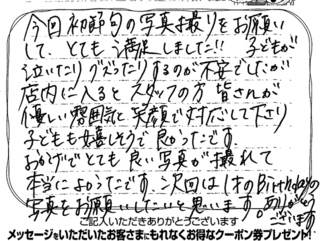 今回初節句の写真撮りをお願い
して、とても満足しました!! 子どもが
泣いたりグズったりするのが不安でしたが
店内に入るとスタッフの方 皆さんが
優しい雰囲気と笑顔で対応して下さり
子どもも嬉しそうで良かったです。
おかげでとても良い写真が撮れて
本当によかったです。次回は1才のBirthdayの
写真をお願いしたいと思います。ありがとう
ございます
ご記入いただきありがとうございます
メッセージをいただいたお客さまにもれなくお得なクーポン券プレゼント!